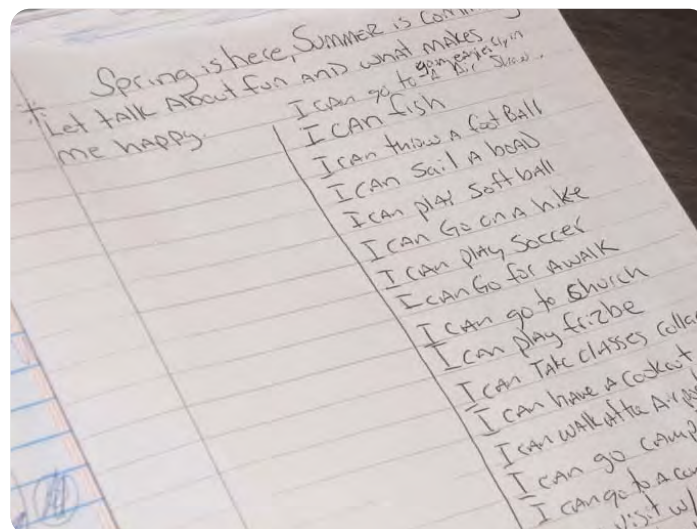 Spring is here, SUMMER is
Let tALK About fun AND what MAKES
me happy.
I CAN go to A Air Show.
I CAN fish
I CAN thiow A foot BAll
I CAN SAil A boAD
I CAN plAy Soft bAll
I CAN Go on A hike
I CAN plAy, Soccer
I CAN Go for A WALK
I CAN go to Shurch
I CAN plAy frizbe
I CAN TAKE clASSes
I CAN hAve A Cookout
I CAN WALK
I CAN go
I CAN go to A